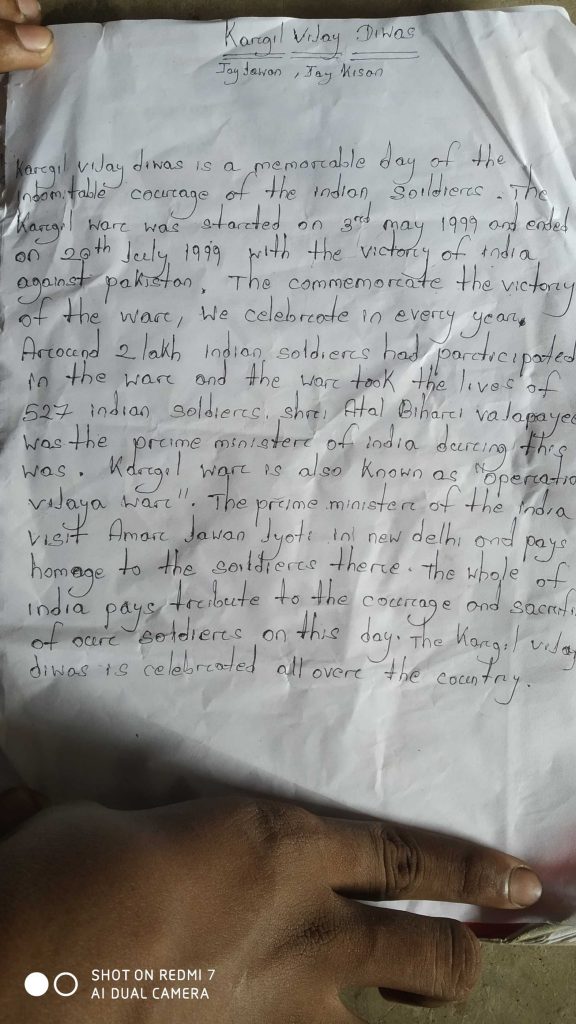 Karegil Vijay Diwas
Jay Jawan , Jay Kisan
Karegil vijay diwas is a memoreable day of the
Indomitable coureage of the indian Soildieres. The
Karegil ware was starected on 3rd may 1999 and ended
on 26th July 1999 with the victorey of india
against pakistan. The commemoreate the victorey
of the ware, We celebreate in everey year.
Areound 2 lakh indian soldieres had parecticipated
in the ware and the ware took the lives of
527 indian soldieres. shrei Atal Biharei vajapayee
was the preime ministere of india dureing this
was. Karegil ware is also known as "operatio
vijaya ware". The preime ministere of the india
visit Amare Jawan Jyoti in new delhi and pays
homage to the soildieres there. The whole of
india pays treibute to the coureage and sacrifi
of oure soldieres on this day. The Karegil vijay
diwas is celebreated all overe the country.
SHOT ON REDMI 7
AI DUAL CAMERA